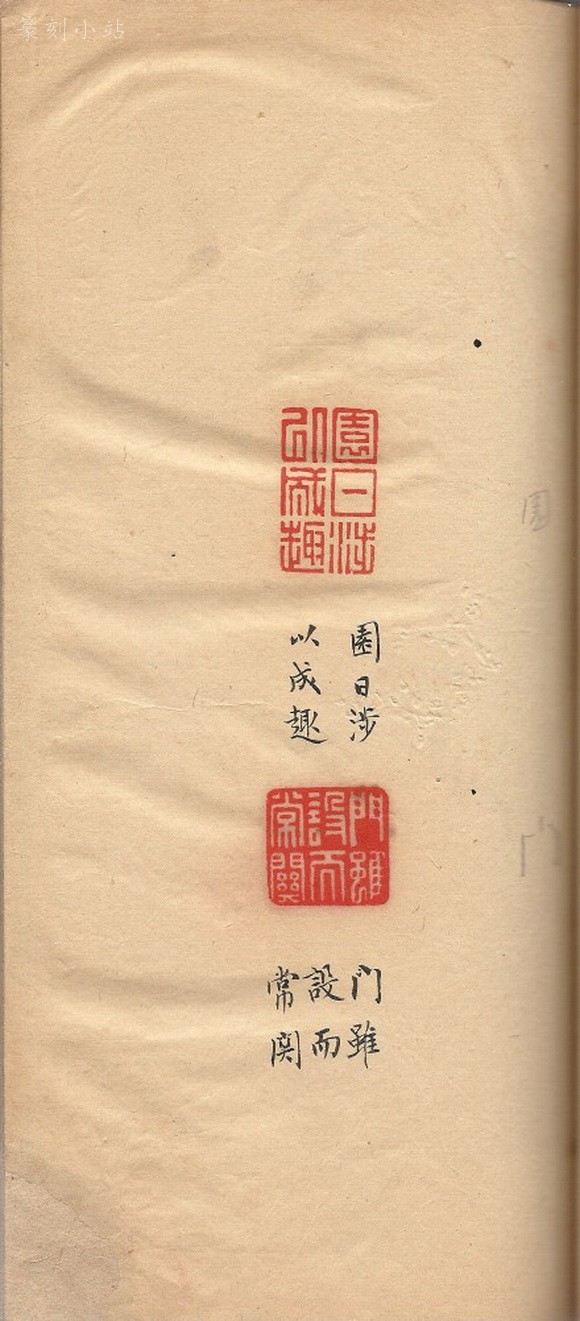 篆刻小站
園日涉
以成趣
園日涉
以成趣
門雖
設而
常關
門雖
設而
常関
園
門